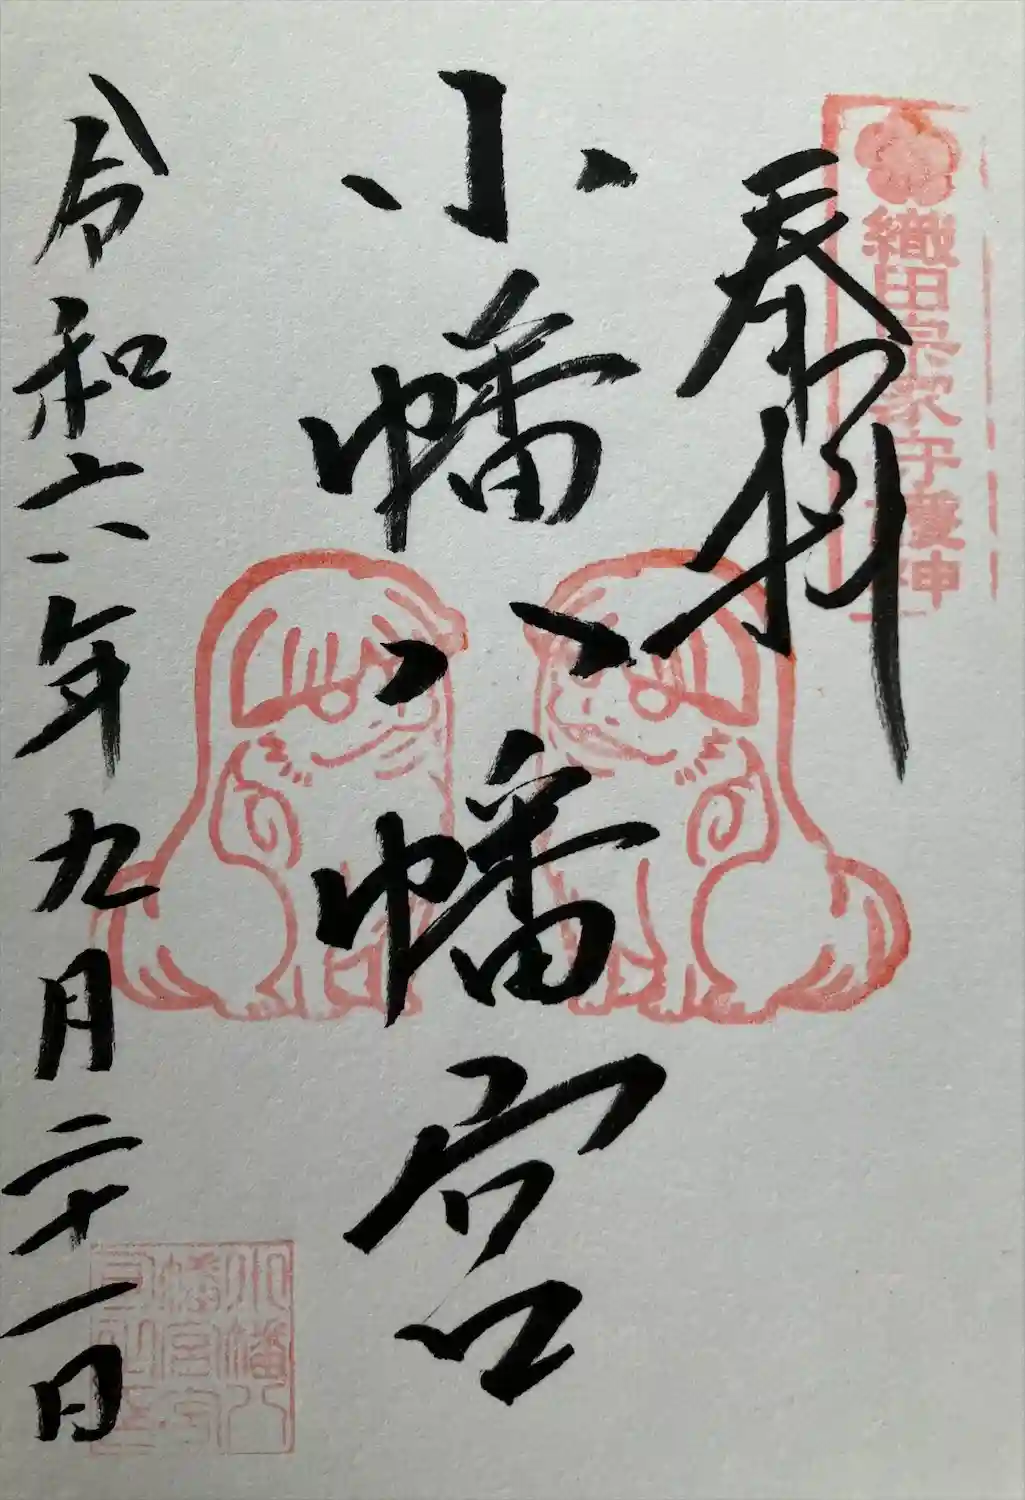 奉拝
織田宗家守護神
小幡八幡宮
令和六年九月二十一日
小幡八
幡宮宮
司之印